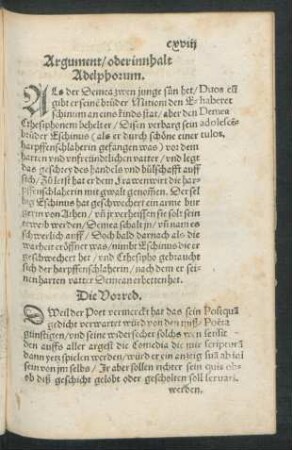 cxviij
Argument/oder innhalt
Adelphorum.
ALs der Demea zwen junge sün het/
gibt er seinē brůder Micioni den Es
schinum an eins kinds stat/aber den
Cthesiphonem behelter/Disen verbarg sein
brůder Eschinus (als er durch schöne einer
harpffenschlaherin gefangen was) vor dem
harten vnd vnfreündtlichen vatter/vnd legt
das geschrey des handels vnd bülschafft auff
sich/Zů letst hat er dem frawenwirt die har
pffenschlaherin mit gwalt genom̄en. Der sel
big Eschinus hat geschwechert ein arme bur
gerin von Athen/vn̄ jr verheissen sie solt sein
eeweib werden/Demea schalt jn/
schwerlich auff/Doch bald darnach als die
warheit eröffnet was/nimbt Eschinus die er
geschwechert het/vnd Cthesipho gebraucht
sich der harpffenschlaherin/nach dem er sei
nen harten vatter Demean erbettenhet.
Duos cū
haberet
Demea
adolescē
tulos.
Die Vorred.
DWeil der Poet vermerckt hat das sein
gedicht verwartet würd von den miß
günstigen/vnd seine widersecher solchs
den auffs aller argest die Comedia die wir
dann yetz spielen werden/würd er ein anzeig
sein von jm selbs/Ir aber sollen richter sein
ob diß geschicht gelobt oder gescholten soll
Postquā
Poëta
sensit
scripturā
suā ab ini
quis ob
seruari.
werden.